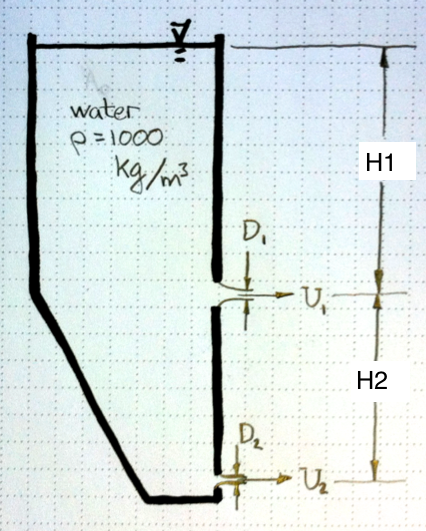 water
ρ=1000
kg/m³
H1
D₁
U₁
H2
D₂
U₂